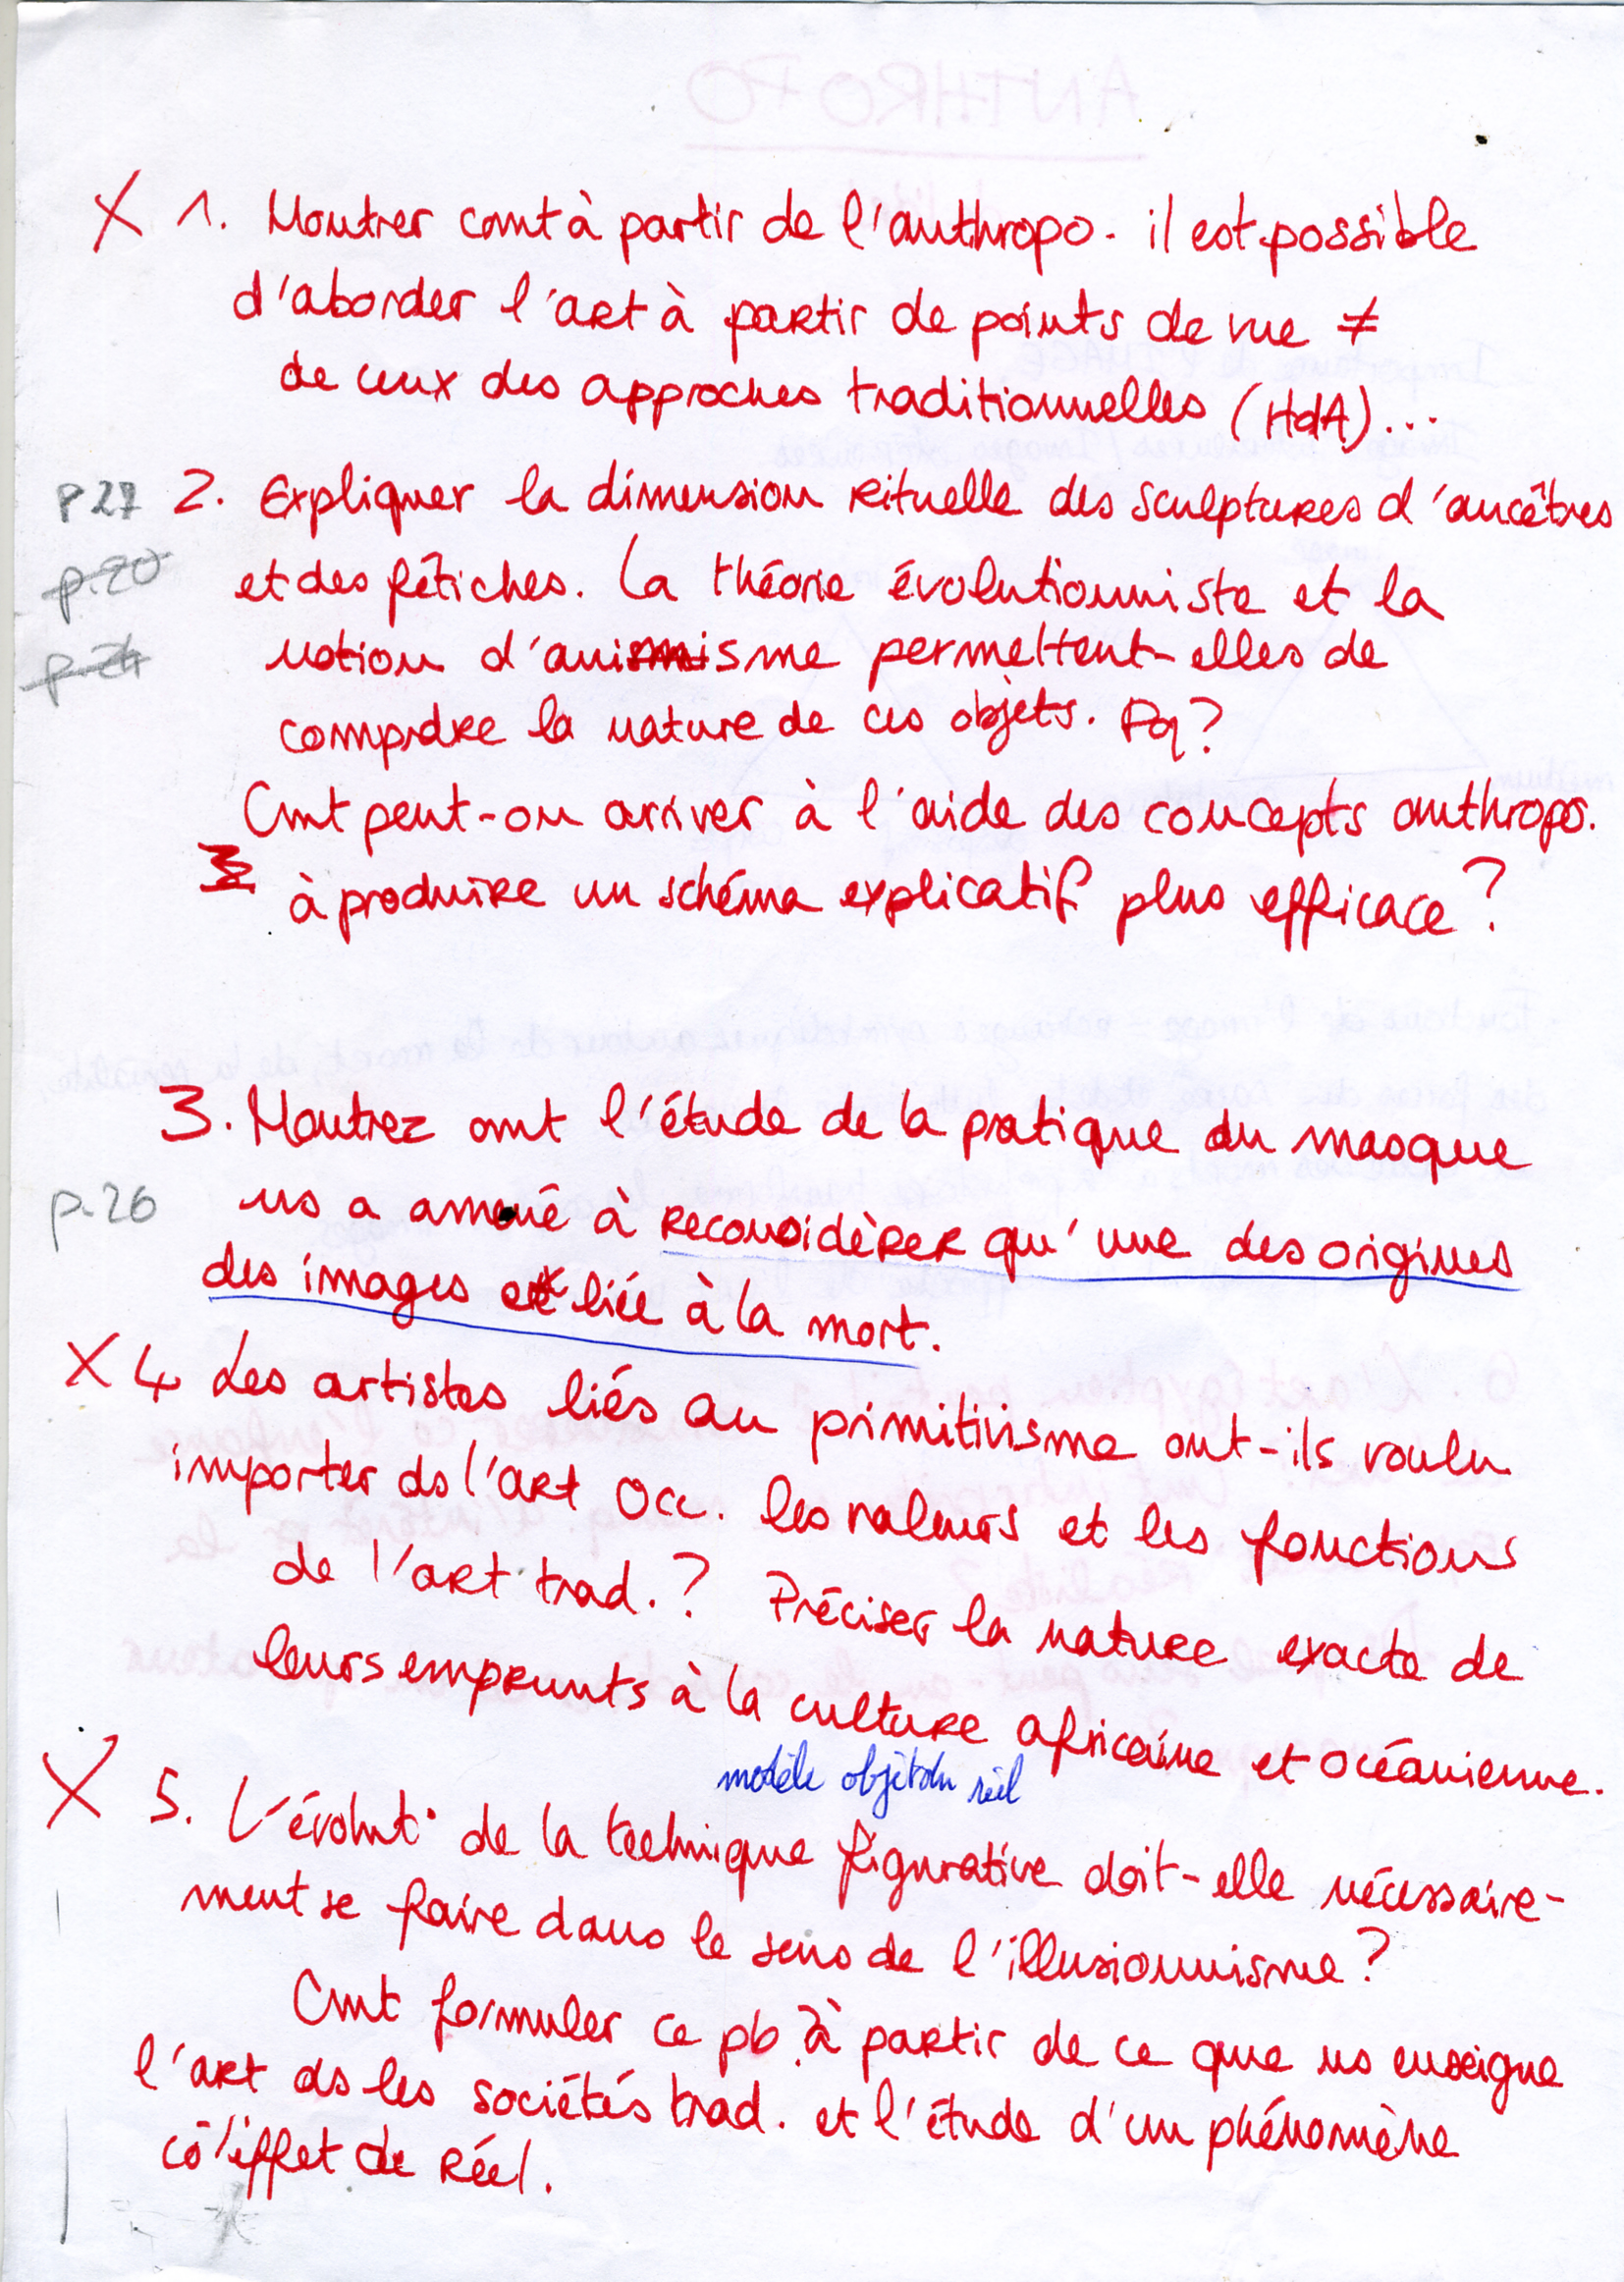 X 1. Montrer comt à partir de l'anthropo. il est possible
d'aborder l'art à partir de points de vue ≠
de ceux des approches traditionnelles (HdA)...
p 27 2. Expliquer la dimension rituelle des sculptures d'ancêtres
p.20 et des fétiches. La théorie évolutionniste et la
notion d'animisme permettent-elles de
comprdre la nature de ces objets. Pq?
Cmt peut-on arriver à l'aide des concepts anthropo.
à produire un schéma explicatif plus efficace?
3. Montrez cmt l'étude de la pratique du masque
p.26 ns a amené à reconsidèrer qu'une des origines
des images est liée à la mort.
X 4 Les artistes liés au primitivisme ont-ils voulu
importer ds l'art Occ. les valeurs et les fonctions
de l'art trad.? Préciser la nature exacte de
leurs emprunts à la culture africaine et océanienne.
modèle objet du réel
X 5. L'évolut° de la technique figurative doit-elle nécessaire-
ment se faire dans le sens de l'illusionnisme?
Cmt formuler ce pb à partir de ce que ns enseigne
l'art ds les sociétés trad. et l'étude d'un phénomène
cô l'effet de Réel.
ANTHROPO